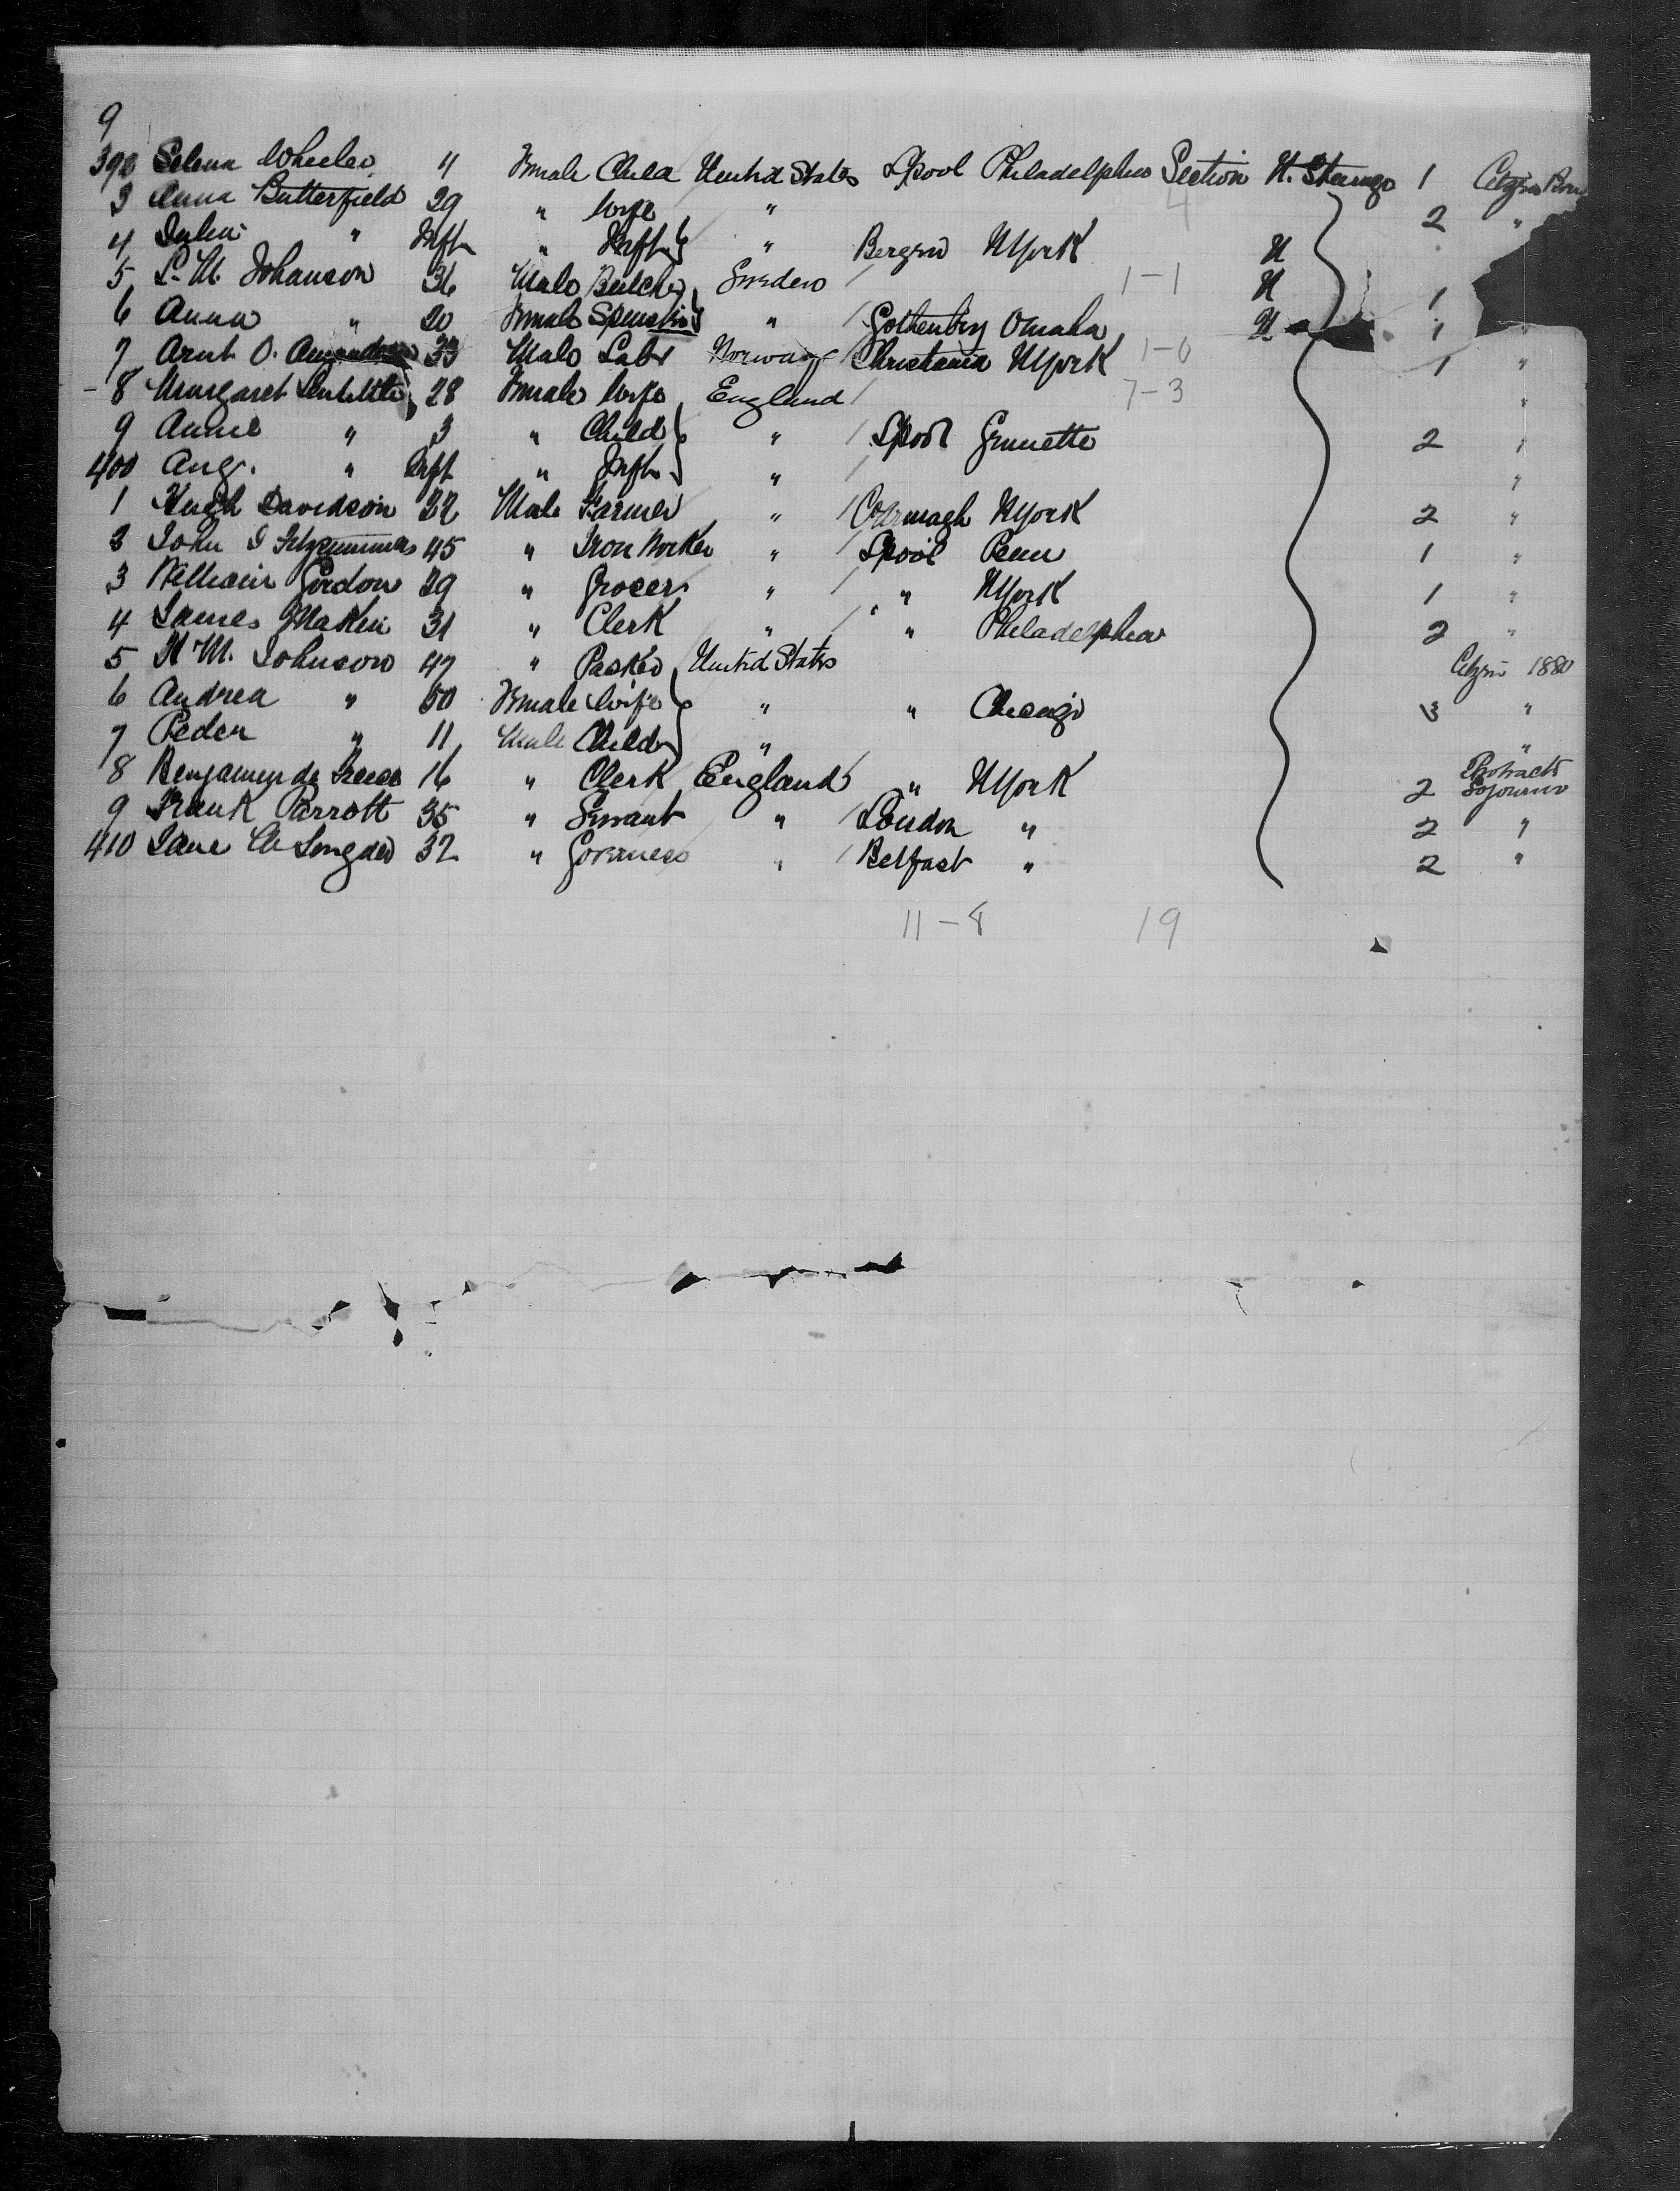 9
392 Selena Wheeler 11 Female Child United States Lpool Philadelphia Section H. Steerage 1 Citizen
3 Anna Butterfield 29 " Wife " 4 2 "
4 " Inft " Inft " Bergen NYork H
5 L. M. Johanson 36 Male Butcher Sweden 1-1 H 1
6 Anna " 20 Female Spinster " Gothenburg Omaha H 1 "
7 Arnt O. 33 Male Labr Norway Christiania NYork 1-0 1 "
8 Margaret 28 Female Wife England 7-3 "
9 Annie " 3 " Child " Lpool 2 "
400 Aug. " Inft " Inft " "
1 Hugh Davidson 32 Male Farmer " NYork 2 "
2 John 45 " Iron Worker " Lpool Penn 1 "
3 William Gordon 29 " Grocer " " NYork 1 "
4 James Makin 31 " Clerk " " Philadelphia 2 "
5 H M. Johnson 47 " United States Citizen 1880
6 Andrea " 50 Female Wife " " Chicago 3 "
7 Peder " 11 Male Child " "
8 Benjamin de 16 " Clerk England " NYork 2 Protracted Sojourn
9 Frank Parrott 35 " Servant " London " 2 "
410 Jane 32 " Governess " Belfast " 2 "
11-8 19